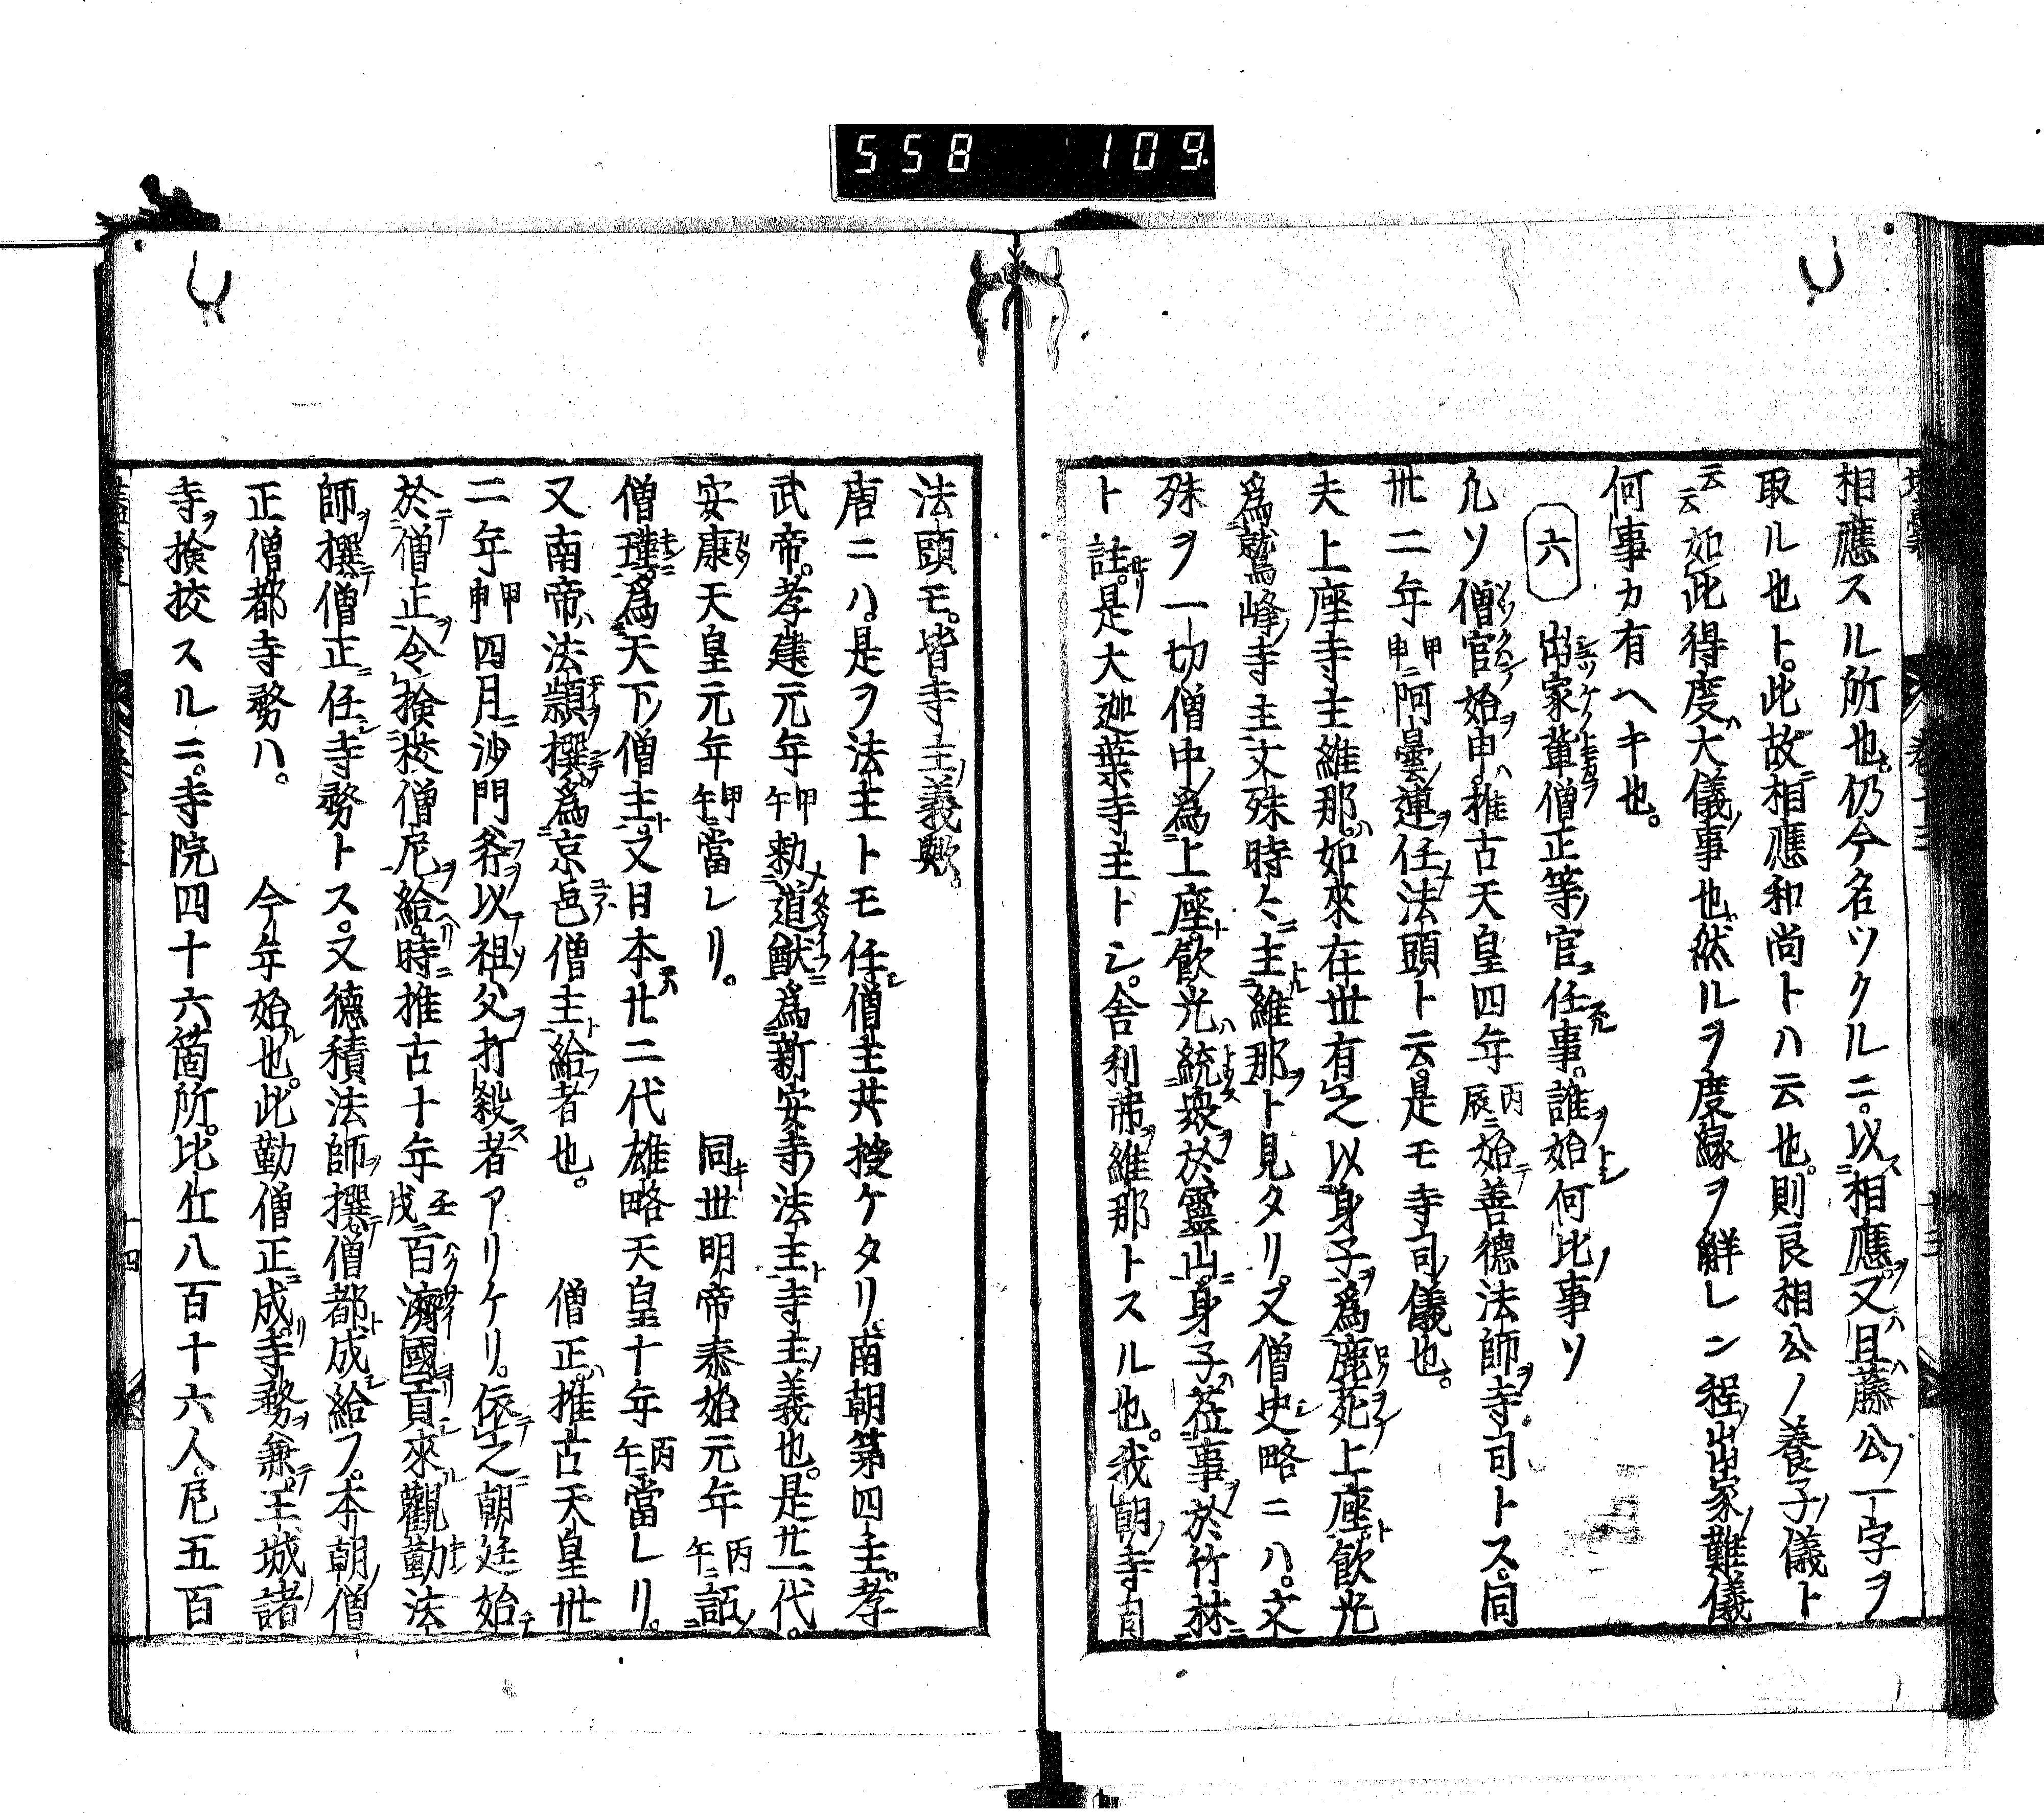 558 109.
相應スル所也。仍今名ツクルニ。以相應。又且藤公一字ヲ
取ル也ト。此故相應和尚トハ云也。則良相公ノ養子儀ト
云云如此得度大儀事也。然ルヲ度縁ヲ鮮レン程出家難儀
何事カ有ヘキ也。
六 出家輩僧正等官任事。誰始何比事ソ
凡ソ僧官始申。推古天皇四年丙辰始善德法師寺司トス。同
卅二年甲申阿曇連任法頭ト云。是モ寺司儀也。
夫上座寺主維那。如來在世有之以身子爲鹿苑上座。飮光
爲鷲峰寺主文殊時々主維那ト見タリ。又僧史略ニハ。文
殊ヲ一切僧中爲上座。飮光統衆於靈山。身子莅事於竹林
ト註。是大迦葉寺主トシ。舎利弗維那トスル也。我朝寺司
法頭モ。皆寺主義歟。
唐ニハ。是ヲ法主トモ任僧主共授ケタリ。南朝第四主。孝
武帝。孝建元年甲午勅道猷爲新安寺法主寺主義也。是廿一代。
安康天皇元年甲午當レリ。 同卅明帝泰始元年丙午詔
僧瑾爲天下僧主。又日本廿二代雄略天皇十年丙午當レリ。
又南帝法頴撰爲京邑僧主給者也。 僧正。推古天皇卅
二年甲申四月沙門斧以祖父打殺者アリケリ。依之朝廷始
於僧正令撿挍僧尼給。時推古十年壬戌百濟國貢來觀勤法
師撰僧正任寺務トス。又德積法師撰僧都成給フ。本朝僧
正僧都寺務ハ。 今年始也。此勤僧正成寺務兼。王城諸
寺撿挍スルニ。寺院四十六箇所。比丘八百十六人。尼五百